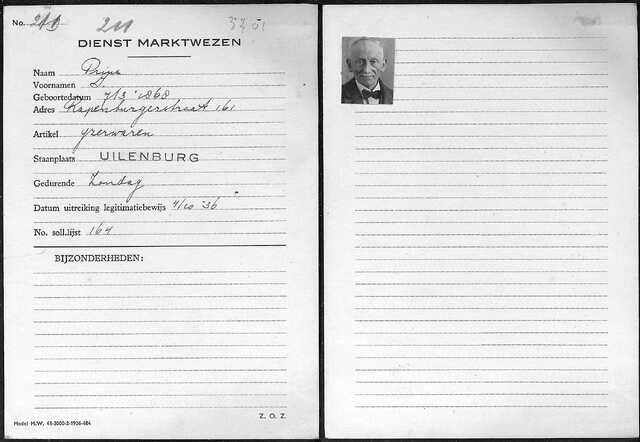 No. 211 211 5201
DIENST MARKTWEZEN
Naam Prins
Voornamen J
Geboortedatum 7/3 '1868
Adres Rapenburgerstraat 161
Artikel Yzerwaren
Staanplaats UILENBURG
Gedurende Zondag
Datum uitreiking legitimatiebewijs 4/10 '36
No. soll.lijst 164
BIJZONDERHEDEN:
Z. O. Z.